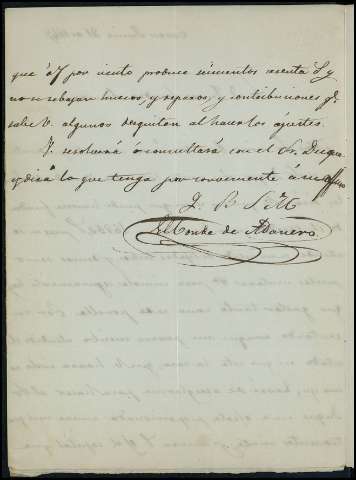 que á 7 por ciento produce seiscientos sesenta y
no se rebajan huecos, y reparos, y contribuciones q.e
sale V. algunos desquitan al hacer los ajustes.
V. resolverá ó consultará con el Sr. Duque
y dirá lo que tenga por conveniente á su affmo
Q B S M
El Conde de Adanero